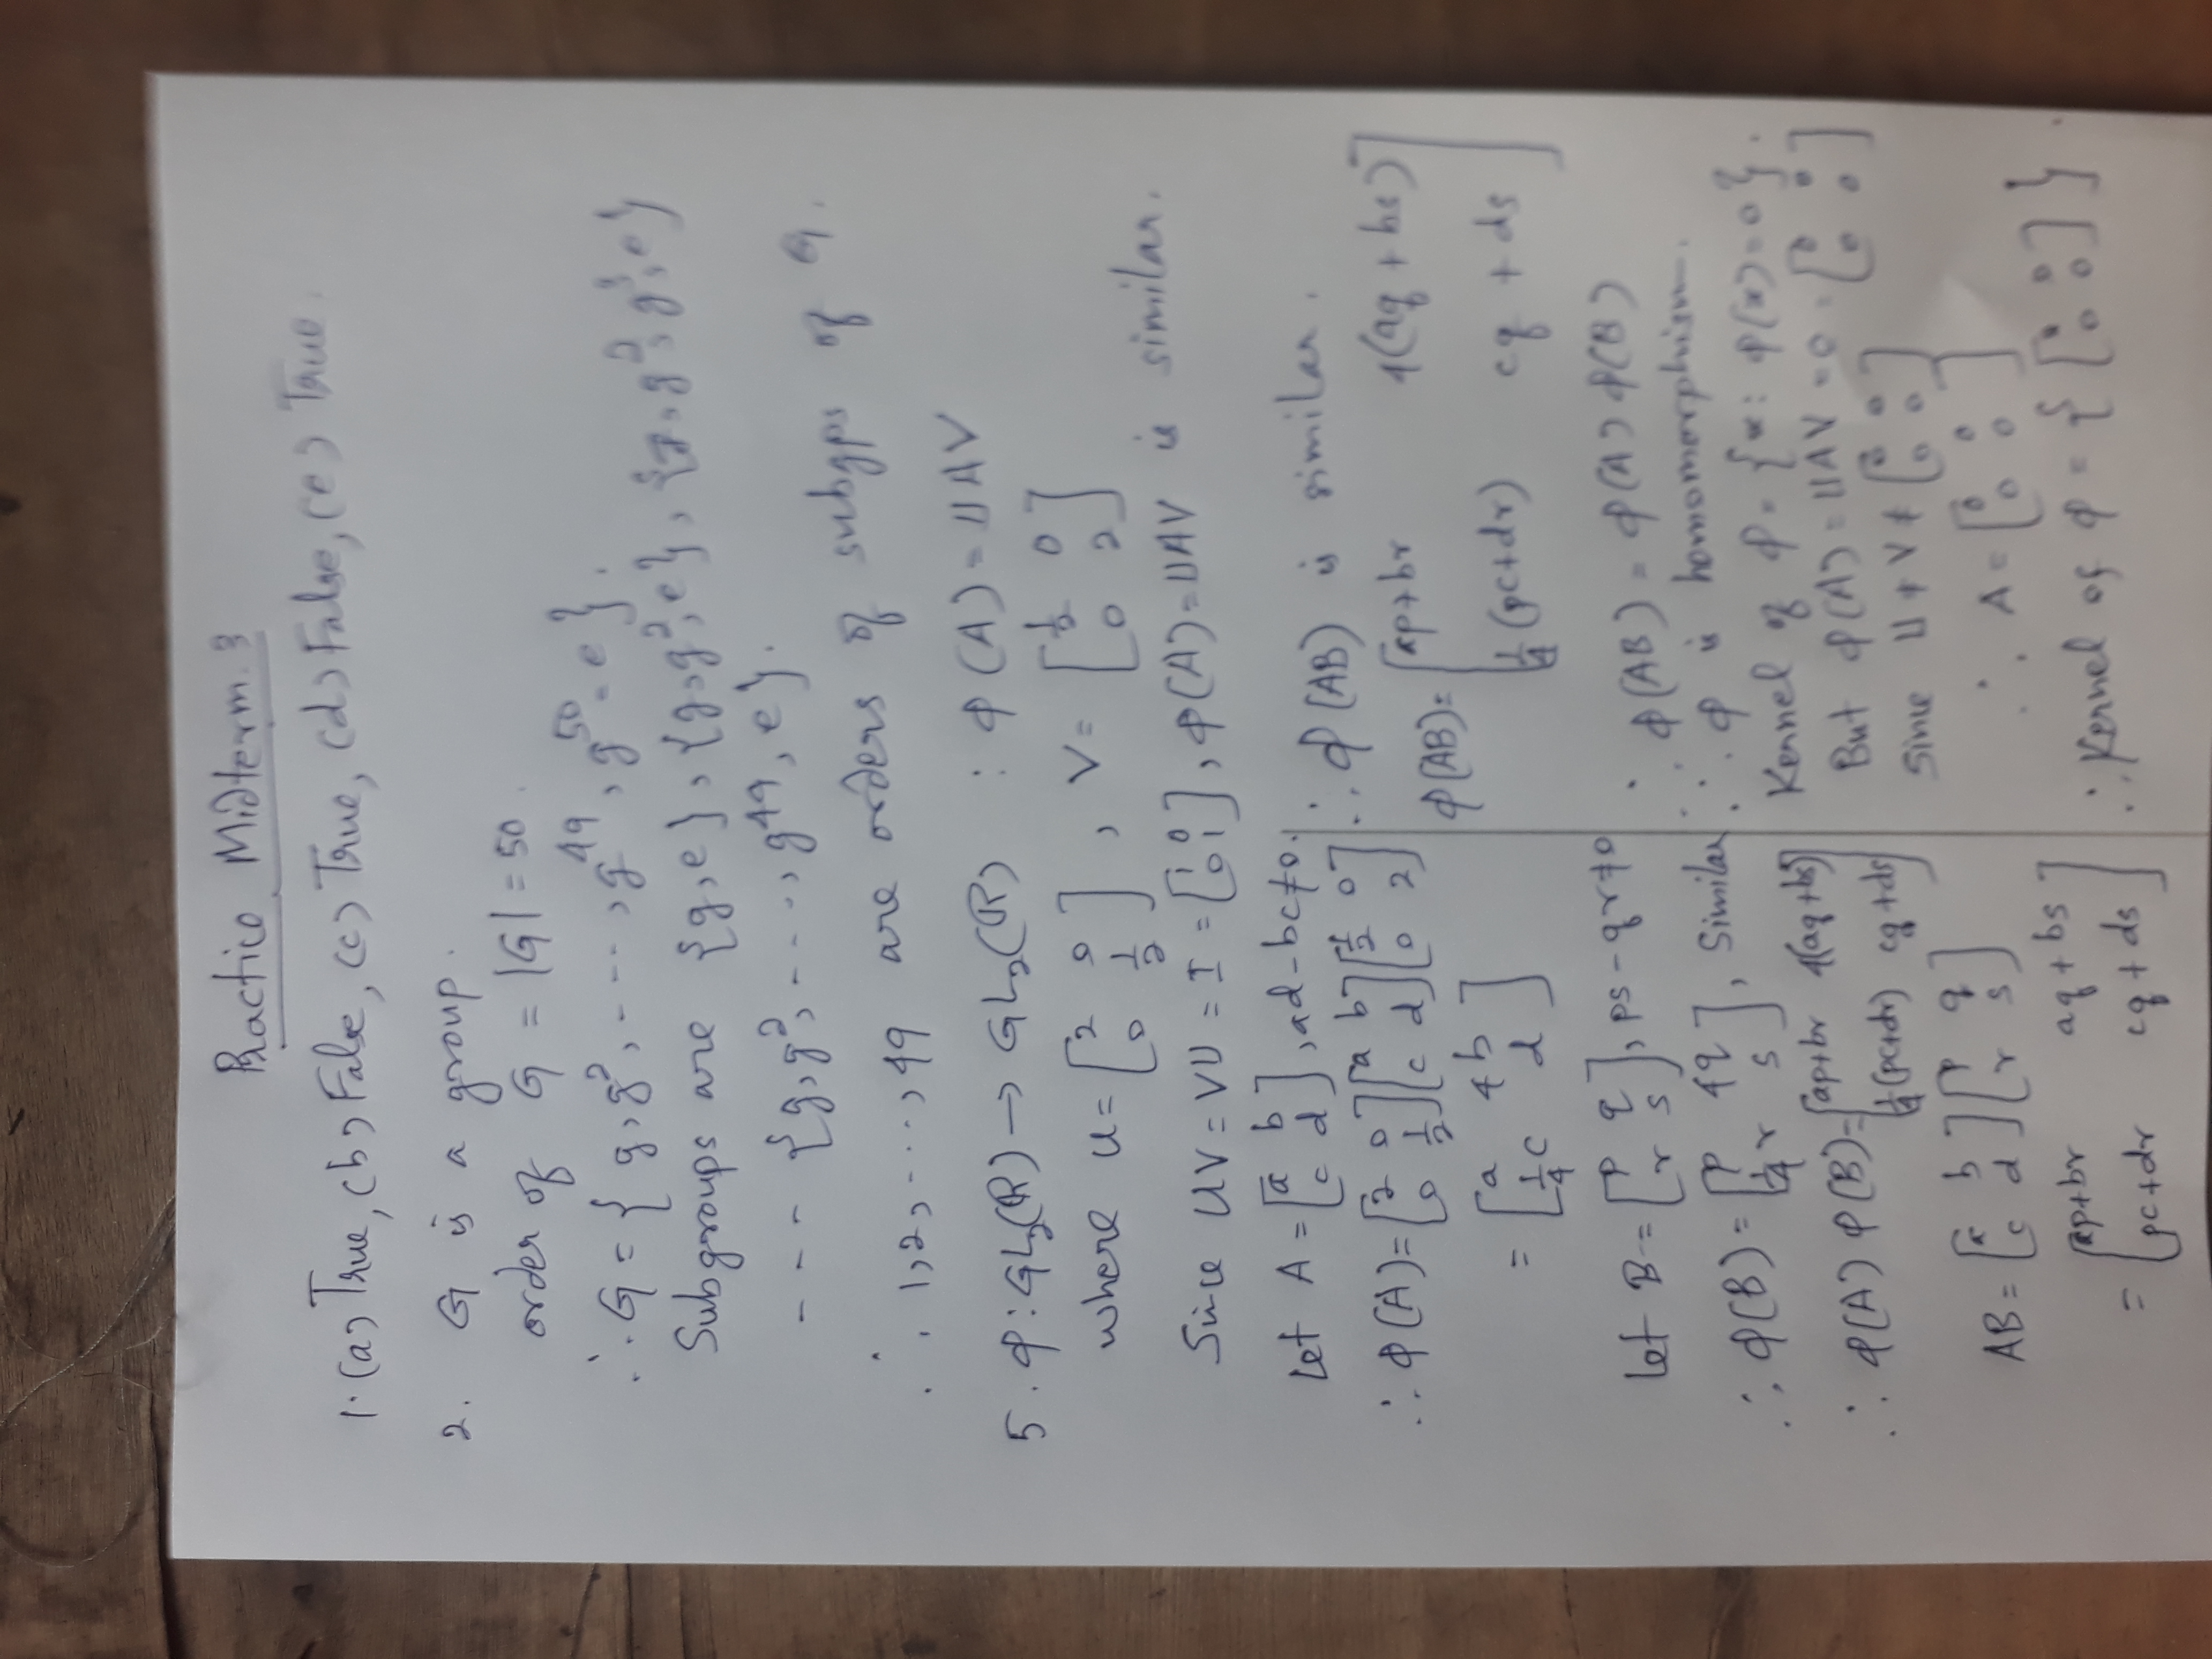 Practice Midterm 3
1. (a) True, (b) False, (c) True, (d) False, (e) True.
2. G is a group.
order of G = |G| = 50.
∴ G = { g, g², ----, g⁴⁹, g⁵⁰ = e }.
Subgroups are {g, e}, {g, g², e}, {g, g², g³, e}
--- {g, g², ----, g⁴⁹, e}.
∴ 1, 2, ----, 49 are orders of subgps of G.
5. φ: GL₂(R) → GL₂(R) : φ(A) = UAV
where U = [2 0; 0 1/2], V = [1/2 0; 0 2]
Since UV = VU = I = [1 0; 0 1], φ(A) = UAV is similar.
Let A = [a b; c d], ad - bc ≠ 0.
∴ φ(A) = [2 0; 0 1/2] [a b; c d] [1/2 0; 0 2]
= [a 4b; 1/4 c d]
Let B = [p q; r s], ps - qr ≠ 0
∴ φ(B) = [p 4q; 1/4 r s], Similar
∴ φ(A) φ(B) = [ap+br 4(aq+bs); 1/4(pc+dr) cq+ds]
AB = [a b; c d] [p q; r s]
= [ap+br aq+bs; pc+dr cq+ds]
∴ φ(AB) is similar.
φ(AB) = [ap+br 4(aq+bs); 1/4(pc+dr) cq+ds]
∴ φ(AB) = φ(A) φ(B)
∴ φ is homomorphism.
Kernel of φ = {x : φ(x) = 0}.
But φ(A) = UAV = 0 = [0 0; 0 0]
Since U ≠ V ≠ [0 0; 0 0]
∴ A = [0 0; 0 0]
∴ Kernel of φ = { [0 0; 0 0] }.